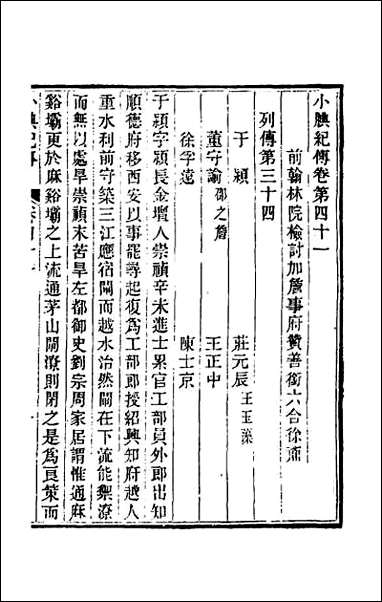 小腆紀傳卷第四十一
前翰林院檢討加詹事府贊善銜六合徐鼒
列傳第三十四
于穎 莊元辰 王玉藻
董守諭 邵之詹 王正中
徐孚遠 陳士京
于穎字穎長金壇人崇禎辛未進士累官工部員外郎出知
順德府移西安以事罷尋起復爲工部郎授紹興知府越人
重水利前守築三江應宿閘而越水治然閘在下流能禦潦
而無以處旱崇禎末苦旱左都御史劉宗周家居謂惟通麻
谿壩更於麻谿壩之上流通茅山閘潦則閉之是爲良策而